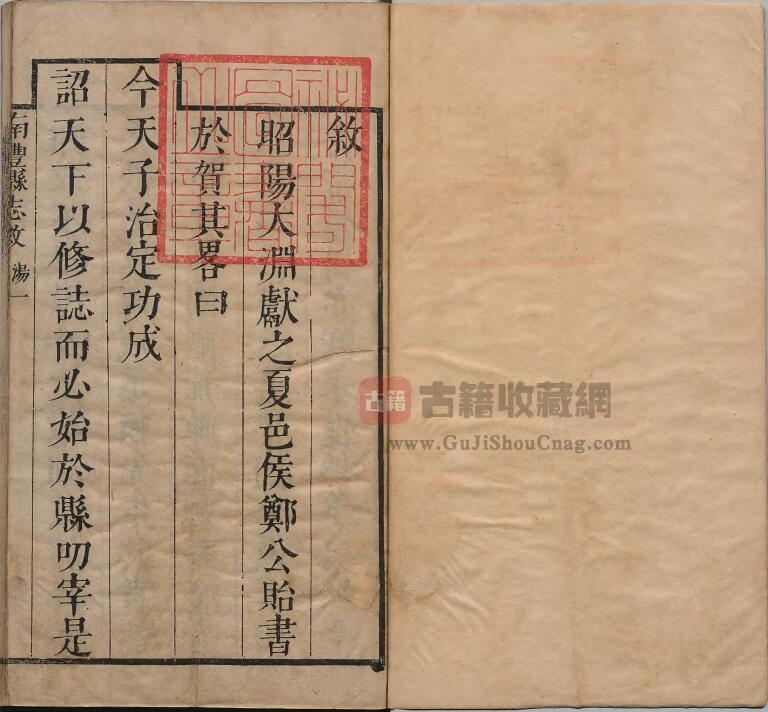 敘
昭陽大淵獻之夏邑侯鄭公貽書
於賀其畧曰
今天子治定功成
詔天下以修誌而必始於縣叨宰是
南豐縣志敘 湯一
古籍 古籍收藏網
www.GuJiShouCnag.com